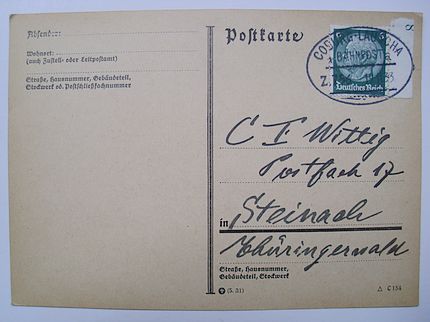 Absender:
Wohnort:
(auch Zustell- oder Leitpostamt)
Straße, Hausnummer, Gebäudeteil,
Stockwerk od. Postschließfachnummer
Postkarte
COBURG-LAUSCHA
BAHNPOST
Z.
Deutsches Reich
C F Wittig
Postfach 17
in Steinach
Thüringerwald
Straße, Hausnummer,
Gebäudeteil, Stockwerk
(5. 31)
△ C 154